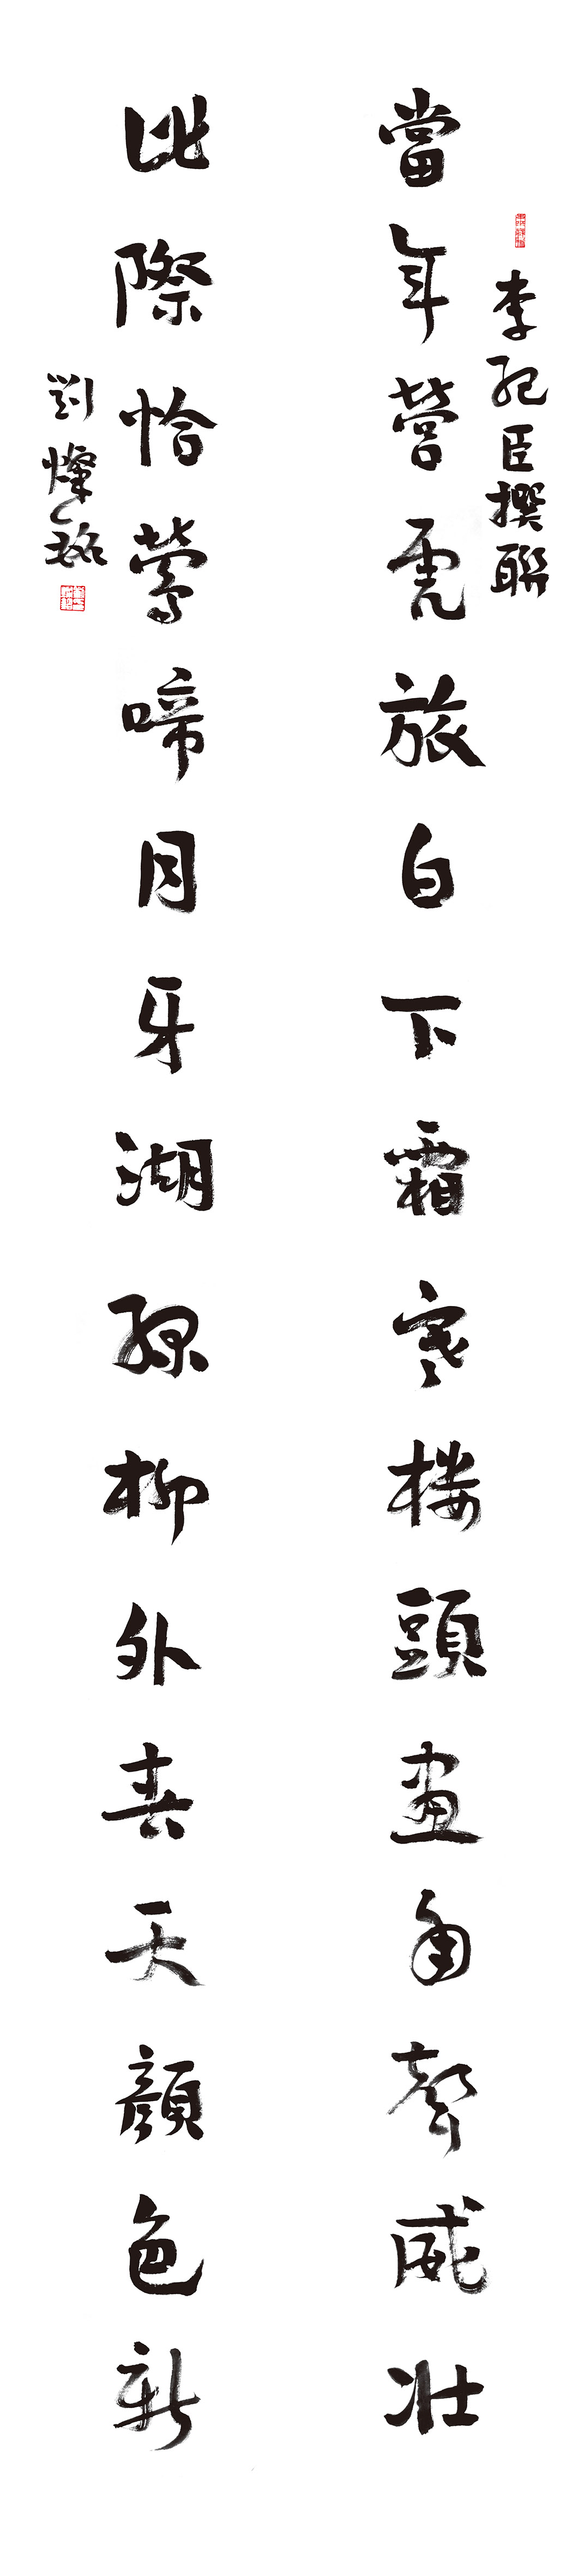 當年營虎旅白下霜寒樓頭畫角聲威壯
李紀臣撰聯
此際恰鶯啼月牙湖綠柳外春天顏色新
劉燦銘